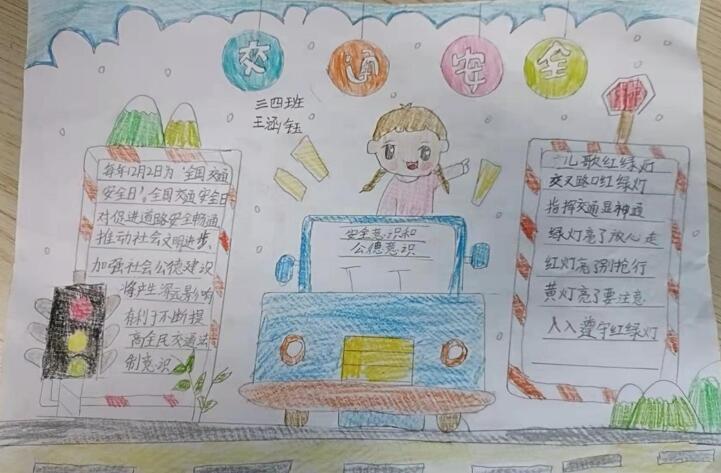 交通安全
三四班
王涵钰
每年12月2日为"全国交通
安全日"。全国交通安全日
对促进道路安全畅通
推动社会文明进步,
加强社会公德建设
将产生深远影响
有利于不断提
高全民交通法
制意识
安全意识和
公德意识
儿歌红绿灯
交叉路口红绿灯
指挥交通显神通
绿灯亮了放心走
红灯亮了别抢行
黄灯亮了要注意
人人遵守红绿灯